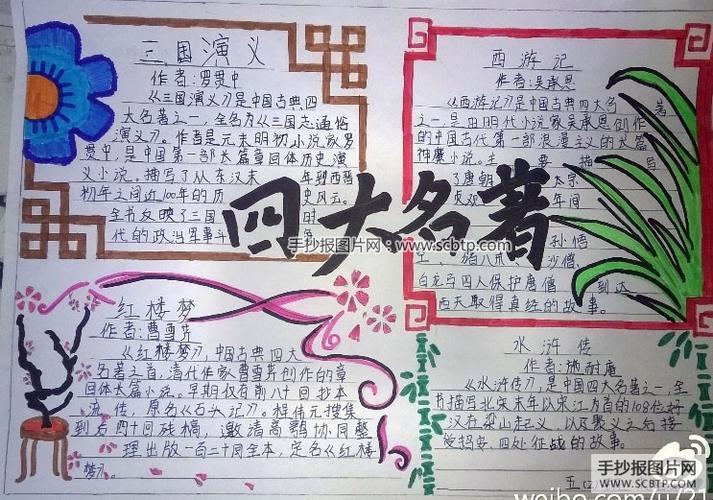 三国演义
作者:罗贯中
《三国演义》是中国古典四
大名著之一,全名为《三国志通俗
演义》。作者是元末明初小说家罗
贯中,是中国第一部长篇章回体历史演
义小说。描写了从东汉末 年到西晋
初年之间近100年的历 史风云。
全书反映了三国 时
代的政治军事斗 争
四大名著
手抄报图片网:www.scbtp.com
西游记
作者:吴承恩
《西游记》是中国古典四大名 著
之一,是由明代小说家吴承恩创作
的中国古代第一部浪漫主义的长篇
神魔小说。主 要 描 写
了唐朝 太宗
贞观 年间
孙悟
空、猪八戒、沙僧、
白龙马四人保护唐僧 到达
西天取得真经的故事。
红楼梦
作者:曹雪芹
《红楼梦》,中国古典四大
名著之首,清代作家曹雪芹创作的章
回体长篇小说。早期仅有前八十回抄本
流传,原名《石头记》。程伟元搜集
到后四十回残稿,邀请高鹗协同整
理出版一百二十回全本,定名《红楼
梦》。
水浒传
作者:施耐庵
《水浒传》,是中国四大名著之一,全
书描写北宋末年以宋江为首的108位好
汉在梁山起义,以及聚义之后接
受招安、四处征战的故事。
五(2)
手抄报图片网
WWW.SCBTP.COM
weibo.com/u/21